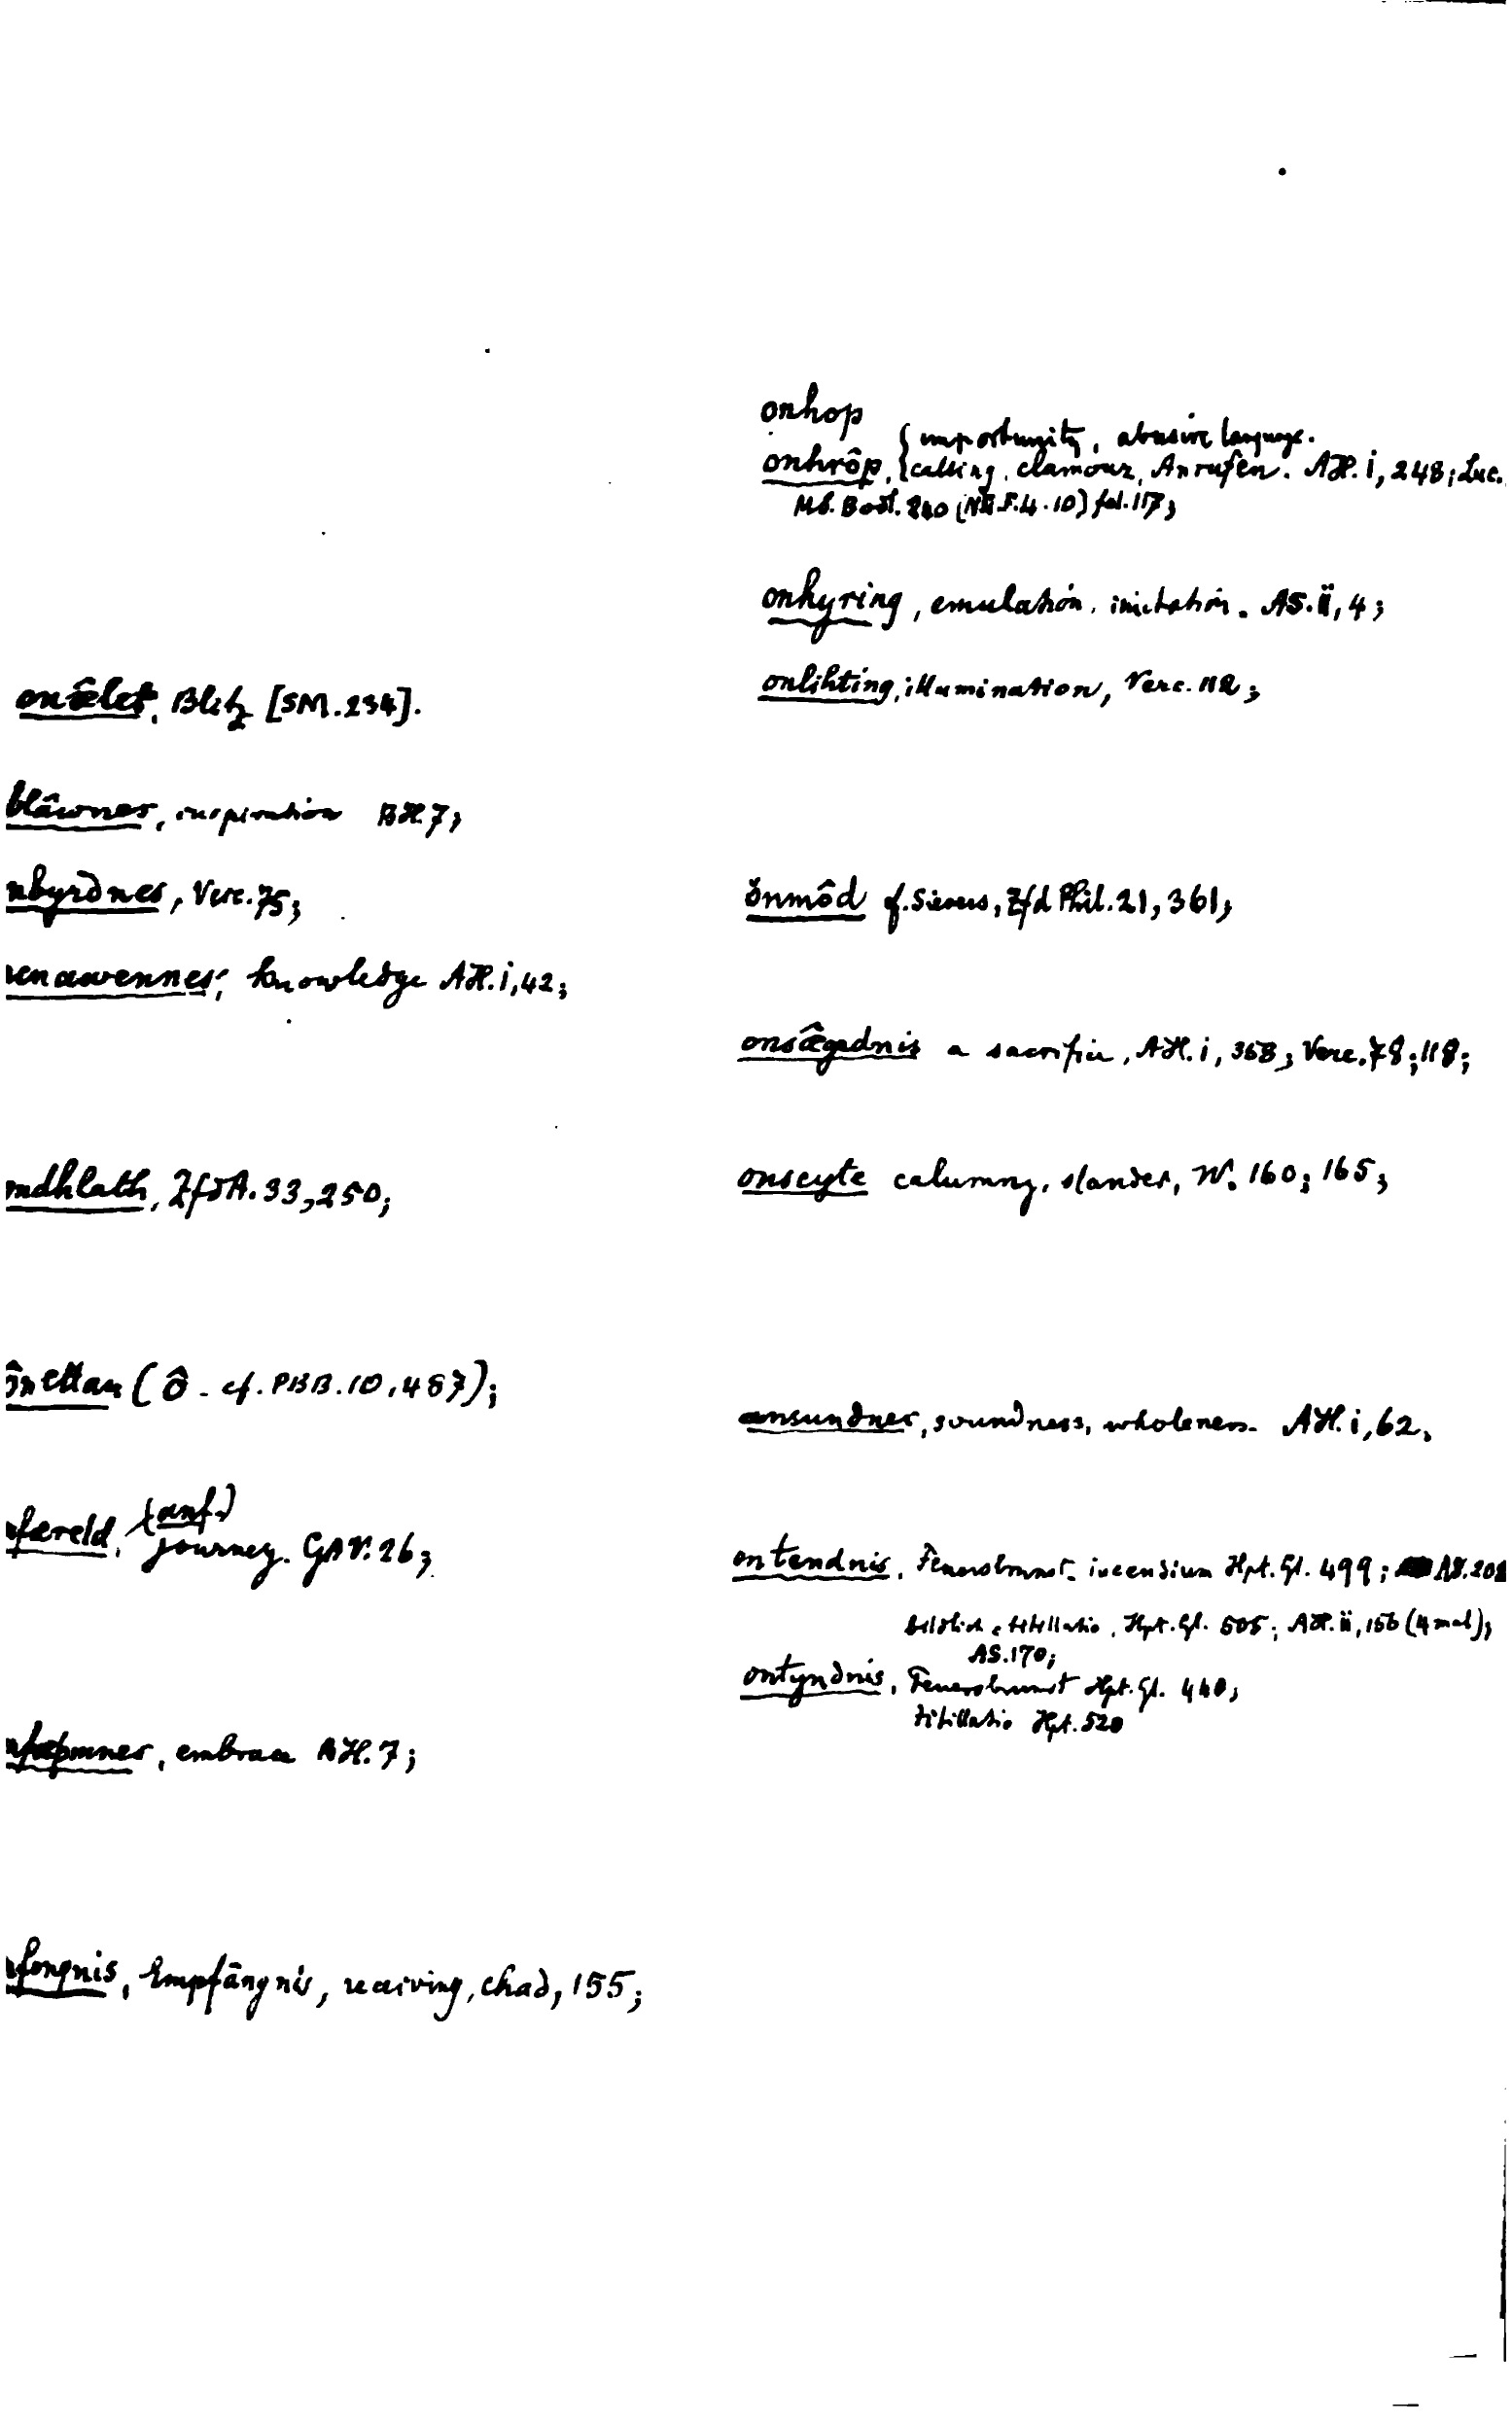 onælet, Blitz [SM. 234].
blâwnes, inspiration BH. 7;
nbyrdnes, Verc. 75;
cnawennes, knowledge AH. i, 42;
ndhlath, ZfdA. 33, 250;
ônettan (ô - cf. PBB. 10, 487);
nfæreld, (anf.)
journey. GAV. 26;
embrace BH. 7;
nfongnis, Empfängnis, receiving, Chad, 155;
onhop
{importunity, abusive language.
onhrôp, {calling, clamour, Anrufen. AH. i, 248; Luc.
MS. Bodl. 240 (NE. F. 4. 10) fol. 117;
onhyring, emulation, imitation. AS. ii, 4;
onlihting, illumination, Verc. 112;
ŏnmôd cf. Sievers, Zfd Phil. 21, 361;
onsægednis a sacrifice, AH. i, 368; Verc. 78; 118;
onscyte calumny, slander, W. 160; 165;
ansundnes, soundness, wholeness. AH. i, 62.
ontendnis, Feuersbrunst, incendium Hpt. Gl. 499; AS. 202
titillatio, Hpt. Gl. 505; AH. ii, 156 (4 mal);
AS. 170;
ontyndnis, Feuersbrunst Hpt. Gl. 440;
titillatio Hpt. 520